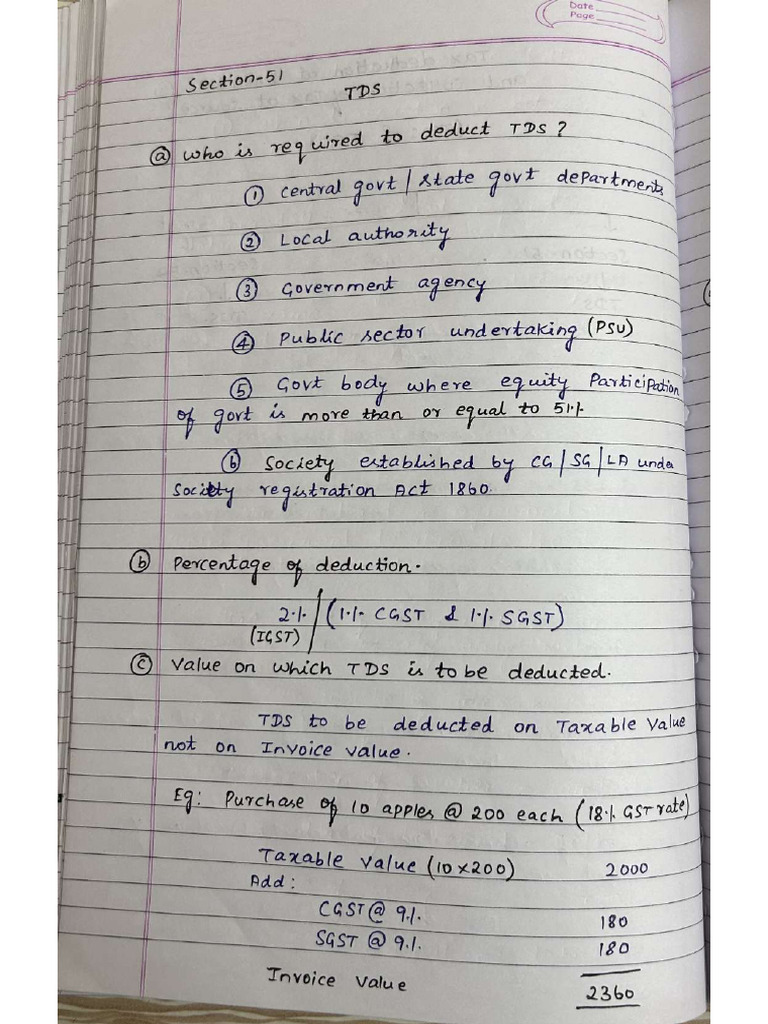 Date
Page
Section-51
TDS
ⓐ Who is required to deduct TDS?
① Central govt / State govt departments
② Local authority
③ Government agency
④ Public sector undertaking (PSU)
⑤ Govt body where equity Participation
of govt is more than or equal to 51%
⑥ Society established by CG/SG/LA under
Society registration Act 1860.
ⓑ Percentage of deduction.
2% / (1% CGST & 1% SGST)
(IGST)
ⓒ Value on which TDS is to be deducted.
TDS to be deducted on Taxable Value
not on Invoice value.
Eg: Purchase of 10 apples @ 200 each (18% GST rate)
Taxable value (10×200) 2000
Add:
CGST @ 9% 180
SGST @ 9% 180
Invoice Value 2360